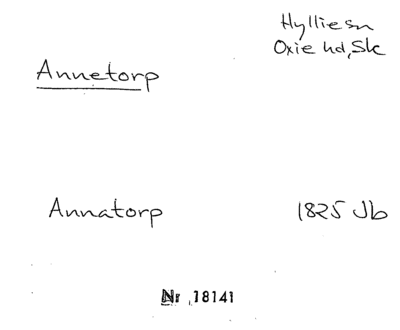 Hyllie sn
Oxie hd, Sk
Annetorp
Annatorp 1825 Jb
Nr 18141